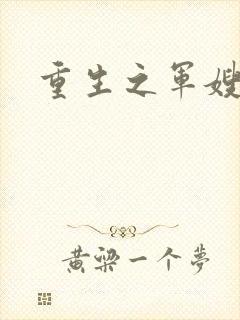 重生之军嫂
黄梁一个夢